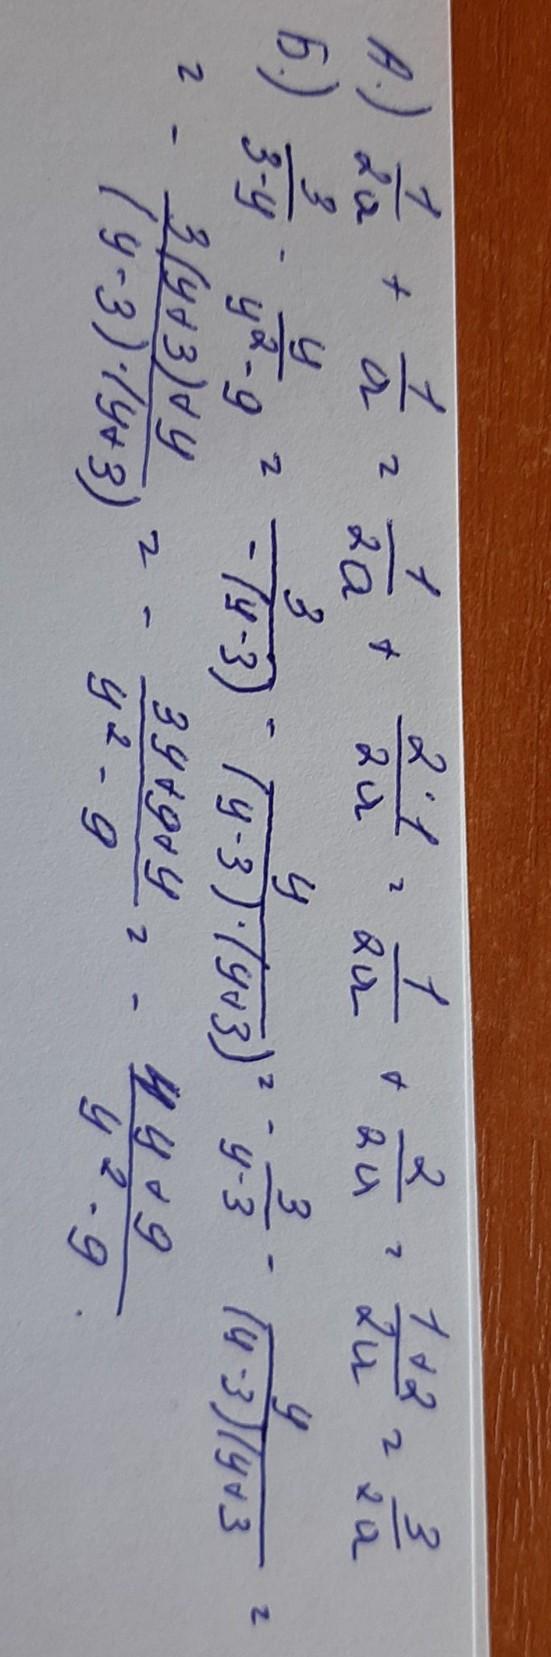 А.) 1/2a + 1/a = 1/2a + 2·1/2a = 1/2a + 2/2a = 1+2/2a = 3/2a
Б.) 3/3-y - y/y²-9 = 3/-(y-3) - y/(y-3)·(y+3) = - 3/y-3 - y/(y-3)(y+3 =
= - 3(y+3)+y/(y-3)·(y+3) = - 3y+9+y/y²-9 = - 4y+9/y²-9.